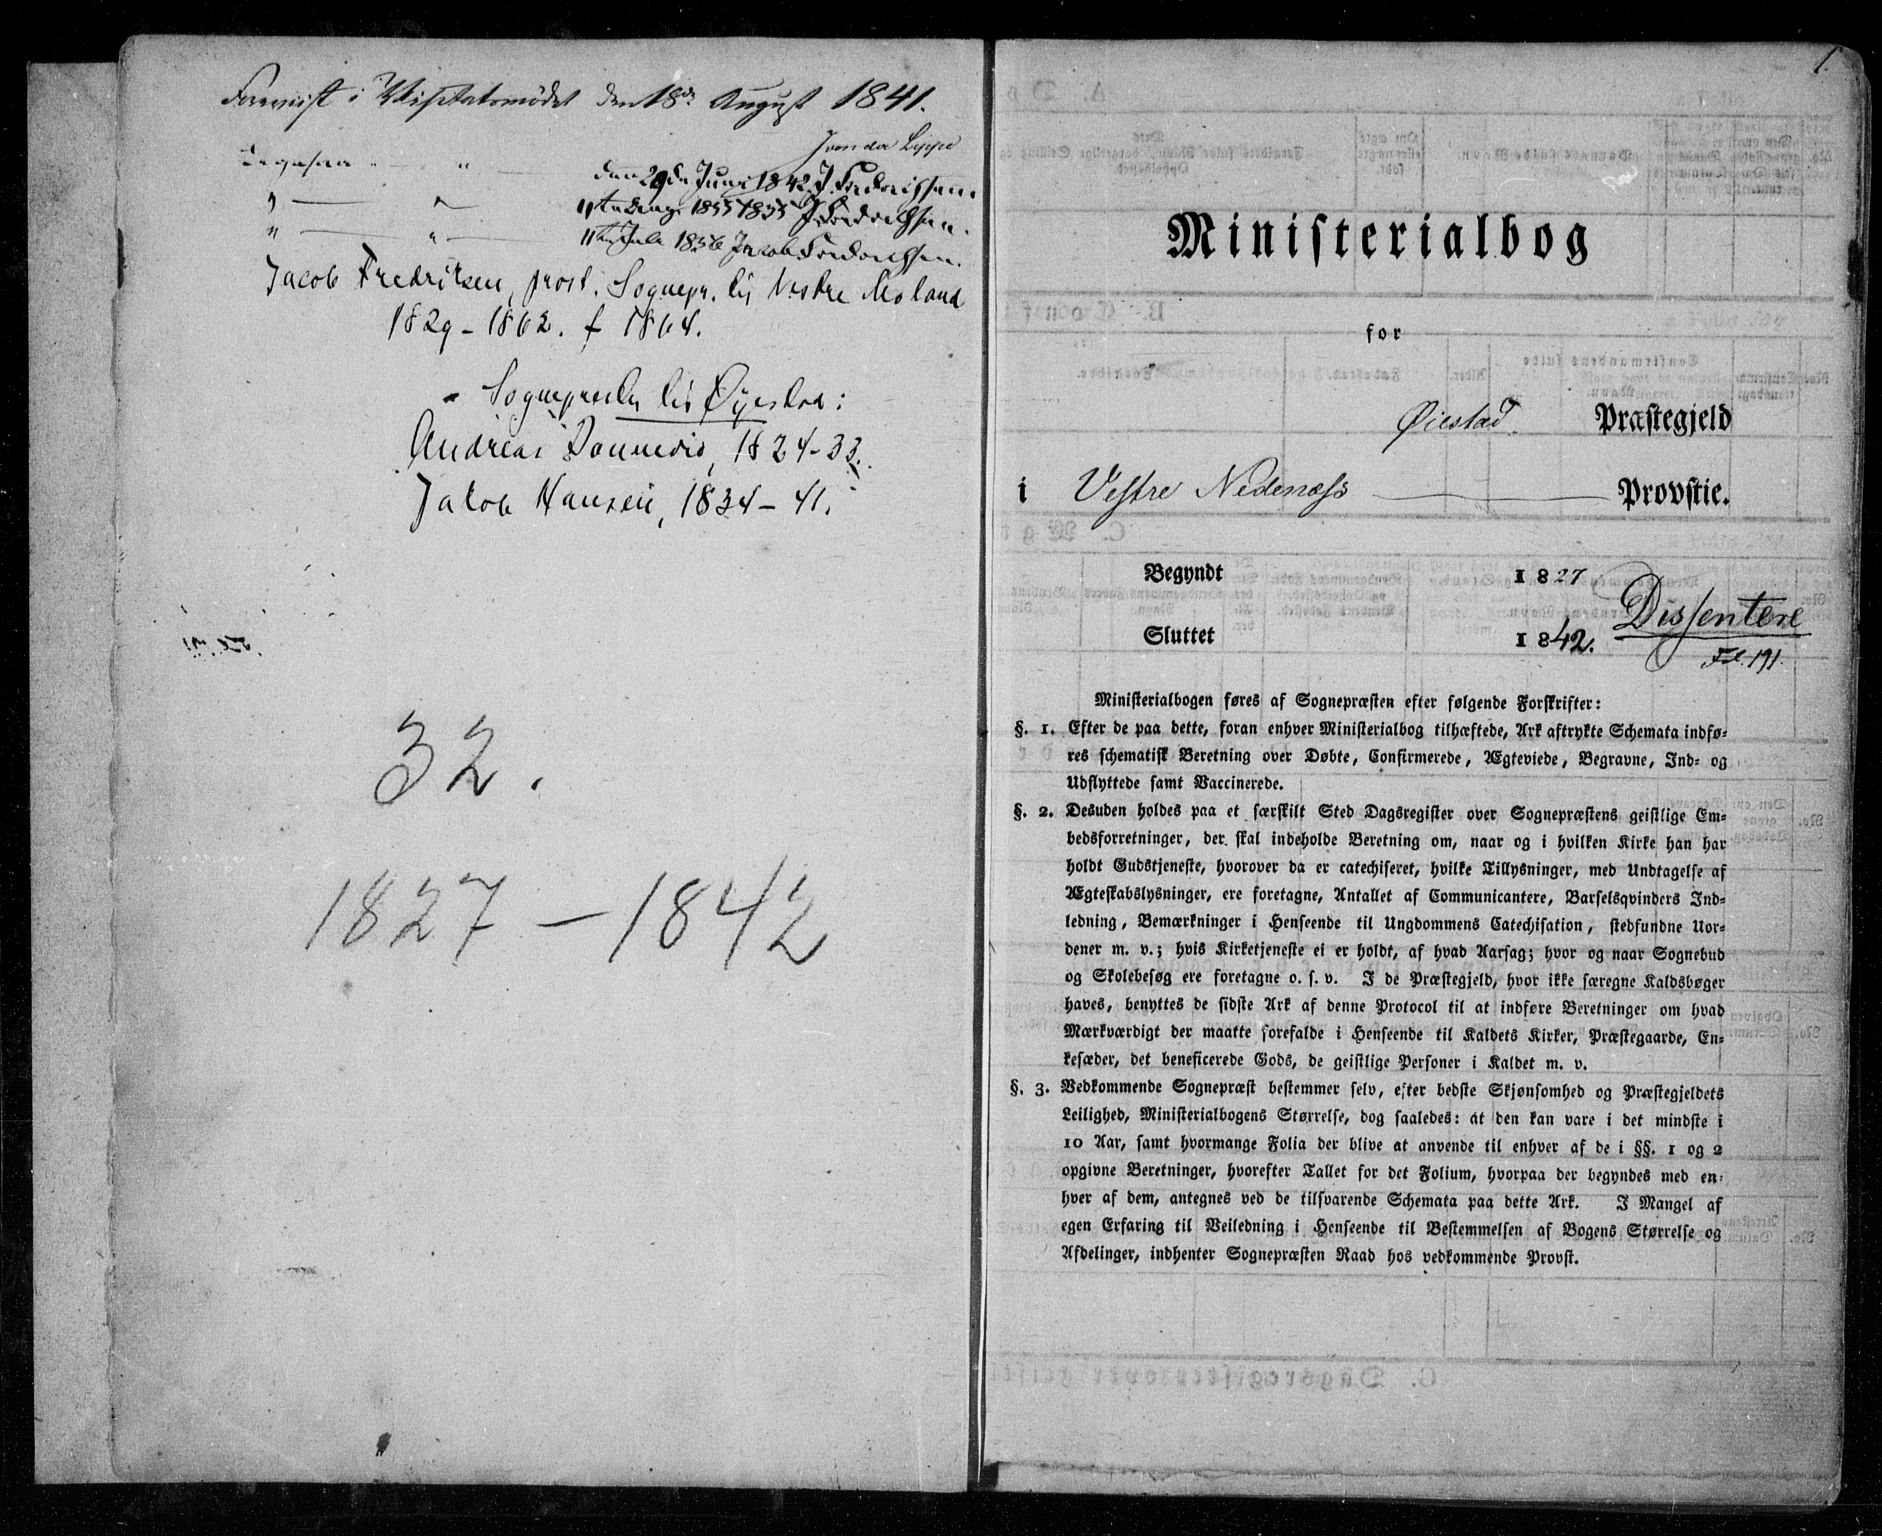 Forevist i Visitatsmødet den 18de August 1841.
J von der Lippe
Ligesaa " — " — den 29de Juni 1842 J. Frederichsen.
" — " — 11te 1855 1835 J Frederichsen.
" — " — 11te Juli 1836 Jacob Frederichsen.
Jacob Fredriksen, prost. Sognepr. til Vestre Moland
1829 - 1862. † 1864.
Sogneprester til Øyestad:
Andreas Dannevig, 1824-33.
Jakob Hansen, 1834-41.
32.
1827 - 1842
1.
Ministerialbog
for
Øiestad Præstegjeld
i Vestre Nedenæss Provstie.
Begyndt 1827
Sluttet 1842.
Dissentere
Fol. 191.
Ministerialbogen føres af Sognepræsten efter følgende Forskrifter:
§. 1. Efter de paa dette, foran enhver Ministerialbog tilhæftede, Ark aftrykte Schemata indfø-
res schematisk Beretning over Døbte, Confirmerede, Ægteviede, Begravne, Ind- og
Udflyttede samt Vaccinerede.
§. 2. Desuden holdes paa et særskilt Sted Dagsregister over Sognepræstens geistlige Em-
bedsforretninger, der skal indeholde Beretning om, naar og i hvilken Kirke han har
holdt Gudstjeneste, hvorover da er catechiseret, hvilke Tillysninger, med Undtagelse af
Ægteskabslysninger, ere foretagne, Antallet af Communicantere, Barselsqvinders Ind-
ledning, Bemærkninger i Henseende til Ungdommens Catechisation, stedfundne Uor-
dener m. v.; hvis Kirketjeneste ei er holdt, af hvad Aarsag; hvor og naar Sognebud
og Skolebesøg ere foretagne o. s. v. I de Præstegjeld, hvor ikke særegne Kaldsbøger
haves, benyttes de sidste Ark af denne Protocol til at indføre Beretninger om hvad
Mærkværdigt der maatte forefalde i Henseende til Kaldets Kirker, Præstegaarde, En-
kesæder, det beneficerede Gods, de geistlige Personer i Kaldet m. v.
§. 3. Vedkommende Sognepræst bestemmer selv, efter bedste Skjønsomhed og Præstegjeldets
Leilighed, Ministerialbogens Størrelse, dog saaledes: at den kan vare i det mindste i
10 Aar, samt hvormange Folia der blive at anvende til enhver af de i §§. 1 og 2
opgivne Beretninger, hvorefter Tallet for det Folium, hvorpaa der begyndes med en-
hver af dem, antegnes ved de tilsvarende Schemata paa dette Ark. I Mangel af
egen Erfaring til Veiledning i Henseende til Bestemmelsen af Bogens Størrelse og
Afdelinger, indhenter Sognepræsten Raad hos vedkommende Provst.